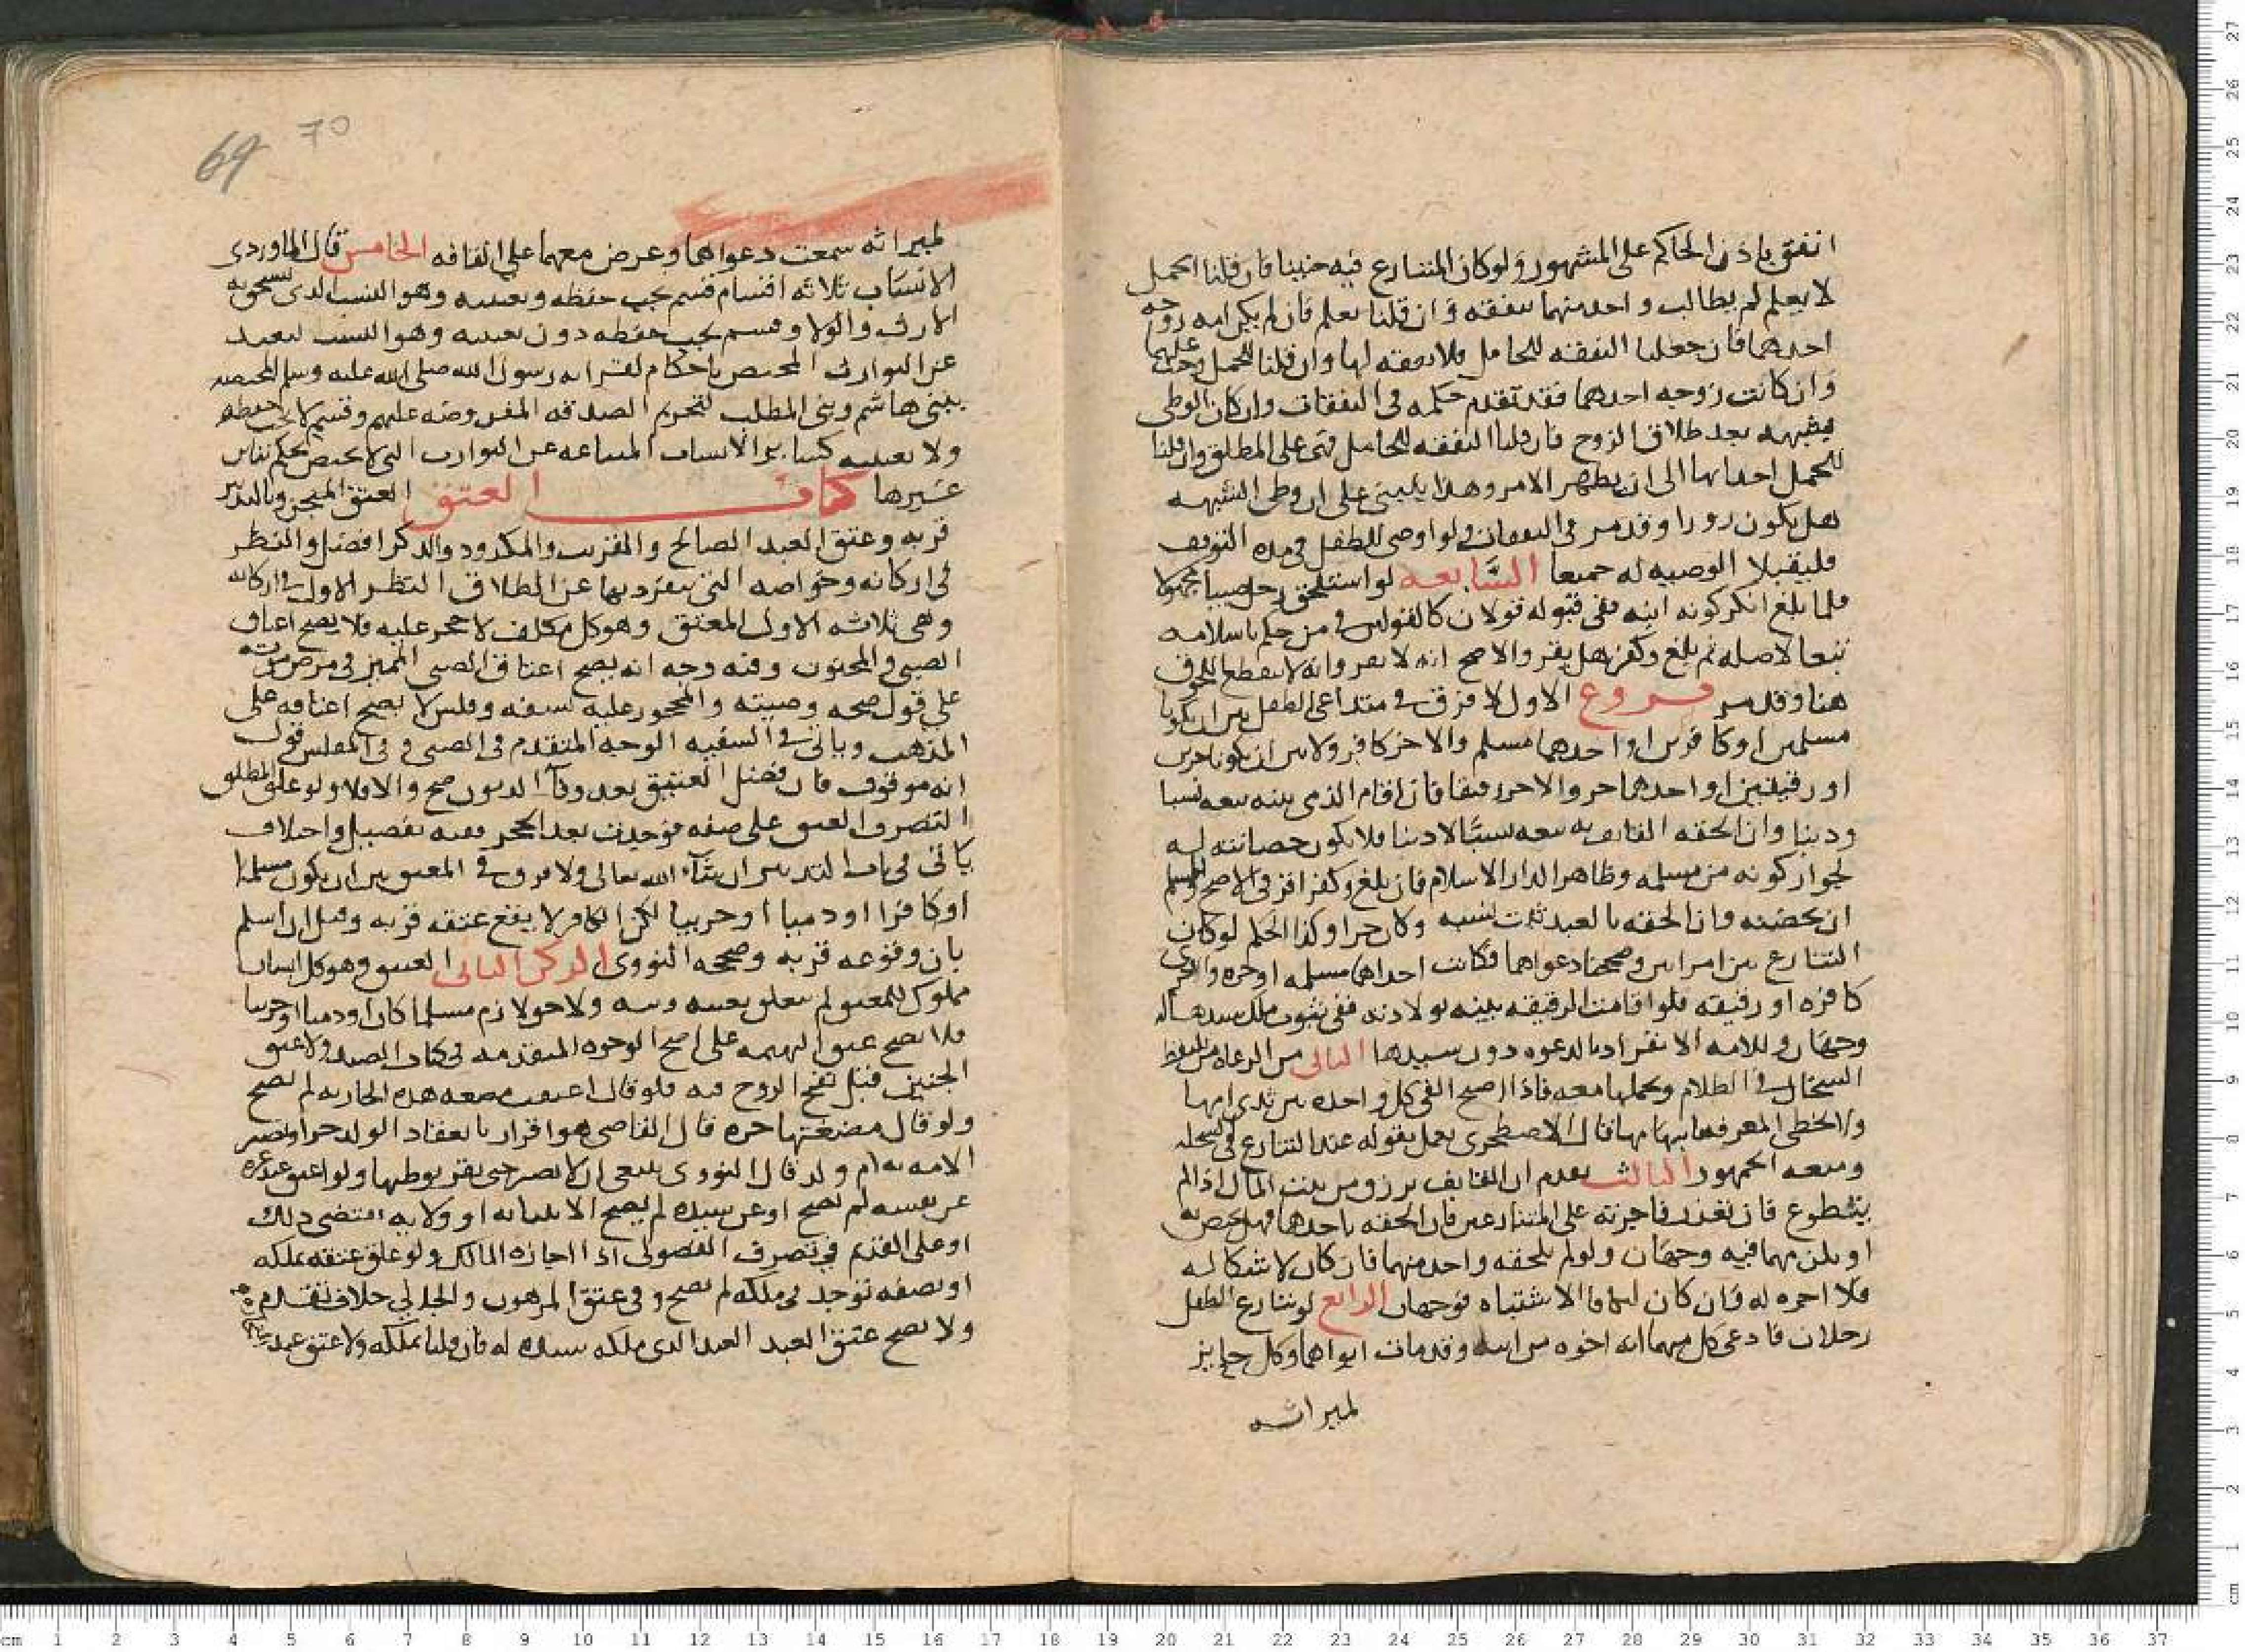 انفق باذن الحاكم على المشهور ولو كان المتنازع فيه جنينا فان قلنا الحمل
لا يعلم لم يطالب واحد منهما بنفقته وان قلنا يعلم فان لم يكن امه زوجه
احدهما فان جعلنا النفقه للحامل فلا نفقه لها وان قلنا للحمل وجب عليهما
وان كانت زوجه احدهما فقد تقدم حكمه في النفقات وان كان الوطى
بشبهه بعد طلاق الزوج فان قلنا النفقه للحامل فهى على المطلق وان قلنا
للحمل الى ان يظهر الامر وهذا ينبنى على ان وطى الشبهه
هل يكون وقد مر فى النفقات ولو اوصى للطفل في مده التوقف
فليقبلا الوصيه له جميعا السابعه لو استلحق رجل صبيا مجهولا
فلما بلغ انكر كونه ابنه ففى قبوله قولان كالقولين في من حكم باسلامه
تبعا لاصله ثم بلغ وكفر هل يقر والاصح انه لا يقر وانه لا ينقطع اللحوق
هنا وقد مر فروع الاول لا فرق في متداعى الطفل بين ان يكونا
مسلمين او كافرين او احدهما مسلم والاخر كافر ولا بين ان يكونا حرين
او رقيقين او احدهما حر والاخر رقيقا فان اقام الذمى بينه تبعه نسبا
ودينا وان الحقه القايف به تبعه نسبا لا دينا فلا يكون حضانته له
لجواز كونه من مسلمه وظاهر الدار الاسلام فان بلغ وكفر اقر في الاصح وللمسلم
ان يحضنه وان الحقه بالعبد ثبت نسبه وكان حرا وكذا الحكم لو كان
التنازع بين امراتين وصححنا دعواهما فكانت احداهما مسلمه او حره والاخرى
كافره او رقيقه فلو اقامت الرقيقه بينه بولادته ففى ثبوت ملك سيدها له
وجهان وللامه الانفراد بالدعوه دون سيدها الثانى من الرعاه من يلتقط
السخال في الظلام ويحملها معه فاذا اصبح القى كل واحده بين يدى امها
ولا يخطى لمعرفته بها قال الاصطخرى يعمل بقوله عند التنازع في سخله
ومنعه الجمهور الثالث تقدم ان القايف يرزق من بيت المال اذا لم
يتطوع فان تعذر فاجرته على المتنازعين فان الحقه باحدهما فهل يختص به
او يلزمهما فيه وجهان ولو لم يلحقه بواحد منهما فان كان لاشكاله
فلا اجره له وان كان لهما الاشتباه فوجهان الرابع لو تنازع الطفل
رجلان فادعى كل منهما انه اخوه من ابيه وقد مات ابواهما وكل حايز
لميراثه
69 70
لميراثه سمعت دعواهما وعرض معهما على القافه الخامس قال الماوردى
الانساب ثلاثه اقسام قسم يجب حفظه وتعيينه وهو النسب الذى يستحق به
الارث والولا وقسم يجب حفظه دون تعيينه وهو النسب البعيد
عن التوارث المختص باحكام لقرابه رسول الله صلى الله عليه وسلم المختصه
ببنى هاشم وبنى المطلب لتحريم الصدقه المفروضه عليهم وقسم لا يجب حفظه
ولا تعيينه كساير الانساب المتباعده عن التوارث التى لا يختص بحكم تباين
غيرها كتاب العتق العتق المنجز وبالتدبير
قربه وعتق العبد الصالح والمقترب والمكدود والذكر افضل والنظر
في اركانه وخواصه التى ينفرد بها عن الطلاق النظر الاول في اركانه
وهى ثلاثه الاول المعتق وهو كل مكلف لا حجر عليه فلا يصح اعتاق
الصبى والمجنون وفيه وجه انه يصح اعتاق الصبى المميز في مرض موته
على قول صحه وصيته والمحجور عليه لسفه وفلس لا يصح اعتاقه على
المذهب وياتى في السفيه الوجه المتقدم في الصبى وفى المفلس قول
انه موقوف فان فضل العتيق بعد وفا الديون صح والا فلا ولو علق المطلق
التصرف العتق على صفه فوجدت بعد الحجر ففيه تفصيل واختلاف
ياتى في باب التدبير ان شآء الله تعالى ولا فرق في المعتق بين ان يكون مسلما
او كافرا او ذميا او حربيا لكن الكافر لا يقع عتقه قربه وقيل ان اسلم
بان وقوعه قربه وصححه النووى الركن الثانى العتيق وهو كل انسان
مملوك للمعتق لم يتعلق بعينه وثيقه ولا حق لازم مسلما كان او ذميا او حربيا
فلا يصح عتق البهيمه على اصح الوجوه المتقدمه في كتاب الصيد ولا عتق
الجنين قبل نفخ الروح فيه فلو قال اعتقت مضغه هذه الجاريه لم يصح
ولو قال مضغتها حره قال القاضى هو اقرار بانعقاد الولد حرا وتصير
الامه به ام ولد قال النووى ينبغى ان لا تصير حتى يقر بوطيها ولو اعتق عبد غيره
عن نفسه لم يصح او عن سيده لم يصح الا بنيابه او ولايه تقتضى ذلك
او على القديم في تصرف الفضولى اذا اجازه المالك ولو علق عتقه بملكه
او بصفه توجد في ملكه لم يصح وفى عتق المرهون والجانى خلاف تقدم
ولا يصح عتق العبد العبد الذى ملكه سيده له فان قلنا بملكه ولا عتق عبد